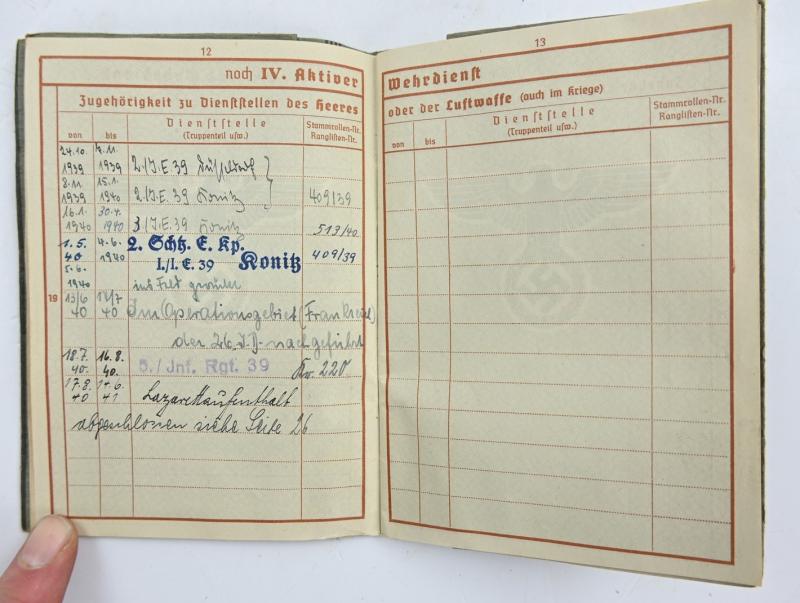 12
noch IV. Aktiver
Zugehörigkeit zu Dienststellen des Heeres
von
bis
Dienststelle
(Truppenteil usw.)
Stammrollen-Nr.
Ranglisten-Nr.
24.10. 1939 7.11. 1939 2./I.E. 39 Düsseldorf
8.11. 1939 15.1. 1940 2./I.E. 39 Konitz 409/39
16.1. 1940 30.4. 1940 3/I.E. 39 Konitz 513/40
1.5. 40 4.6. 1940 2. Schtz. E. Kp.
I./I. E. 39 Konitz 409/39
5.6. 1940 ins Feld
19 13/6 40 17/7 40 Im Operationsgebiet (Frankreich)
der 26. I.D. nachgeführt
18.7. 40. 16.8. 40. 5./Inf. Rgt. 39 Kr. 220
17.8. 40 14.6. 41 Lazarettaufenthalt
abgeschlossen siehe Seite 26
13
Wehrdienst
oder der Luftwaffe (auch im Kriege)
von
bis
Dienststelle
(Truppenteil usw.)
Stammrollen-Nr.
Ranglisten-Nr.